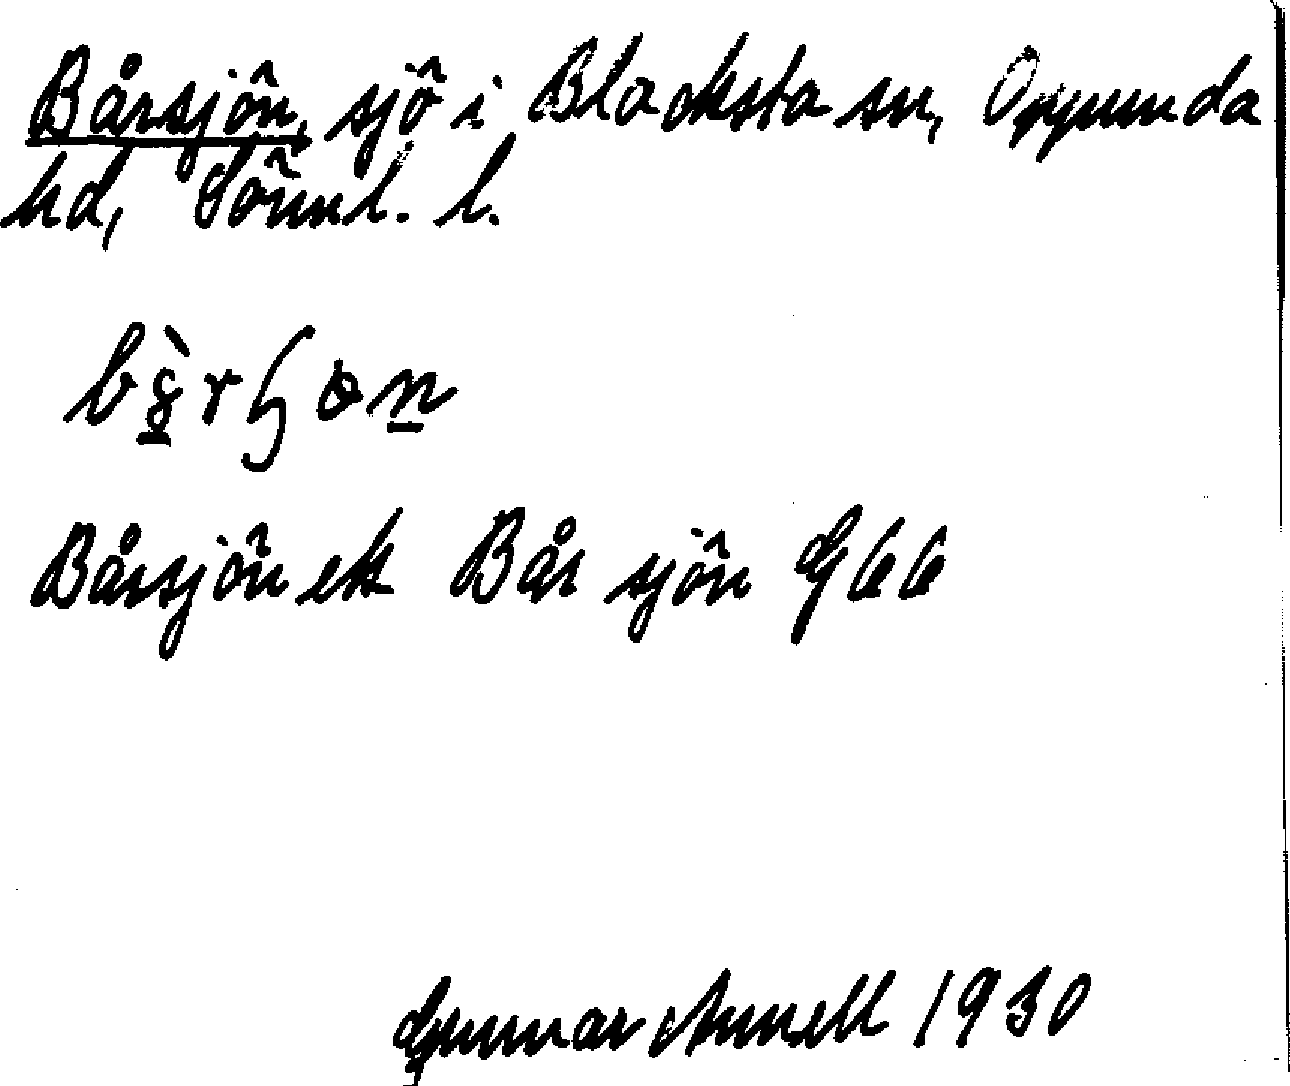 Bårsjön, sjö i Blacksta sn, Oppunda
hd, Sörml. l.
Bårsjön ek Bår sjön G 66
Gunnar Annell 1930